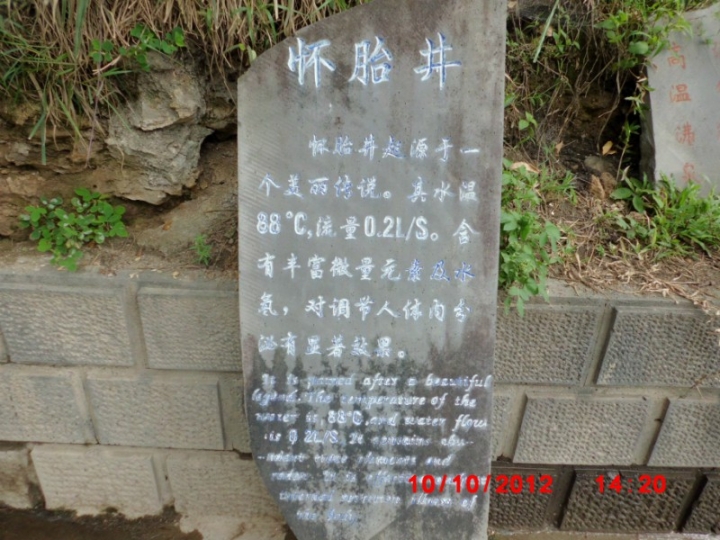 怀胎井
怀胎井起源于一
个美丽传说。其水温
88℃,流量0.2L/S。含
有丰富微量元素及水
氡,对调节人体内分
泌有显著效果。
It is named after a beautiful
legend. The temperature of the
water is 88℃, and water flow
is 0.2L/S. It contains abu-
高温
10/10/2012 14:20